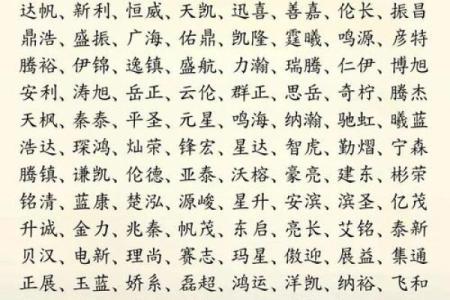 达帆、新利、恒威、天凯、迅喜、善嘉、伦长、振昌
鼎浩、盛振、广海、佑鼎、凯隆、霆曦、鸣源、彦特
腾裕、伊锦、逸镇、盛航、力瀚、瑞腾、仁伊、博旭
安利、涛旭、岳正、云伦、群正、思岳、奇柠、腾杰
天枫、秦泰、平圣、元星、鸣海、纳瀚、驰虹、曦蓝
浩达、琛鸿、灿荣、锋宏、星达、智虎、勤熠、宁森
腾镇、谦凯、伦德、亚泰、沃榕、豪亮、建东、彬荣
铭清、蓝康、楚泓、源峻、星升、安滨、滨圣、亿茂
升诚、金力、兆秦、帆茂、东启、亮长、艾铭、泰新
贝汉、电新、理尚、赛志、玛星、傲迎、展益、集通
正展、玉蓝、娇系、磊超、鸿运、洋凯、纳裕、飞和